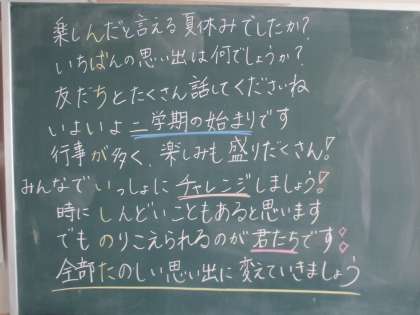 楽しんだと言える夏休みでしたか?
いちばんの思い出は何でしょうか?
友だちとたくさん話してくださいね
いよいよ二学期の始まりです
行事が多く、楽しみも盛りだくさん!
みんなでいっしょにチャレンジしましょう!
時にしんどいこともあると思います
でものりこえられるのが君たちです!
全部たのしい思い出に変えていきましょう